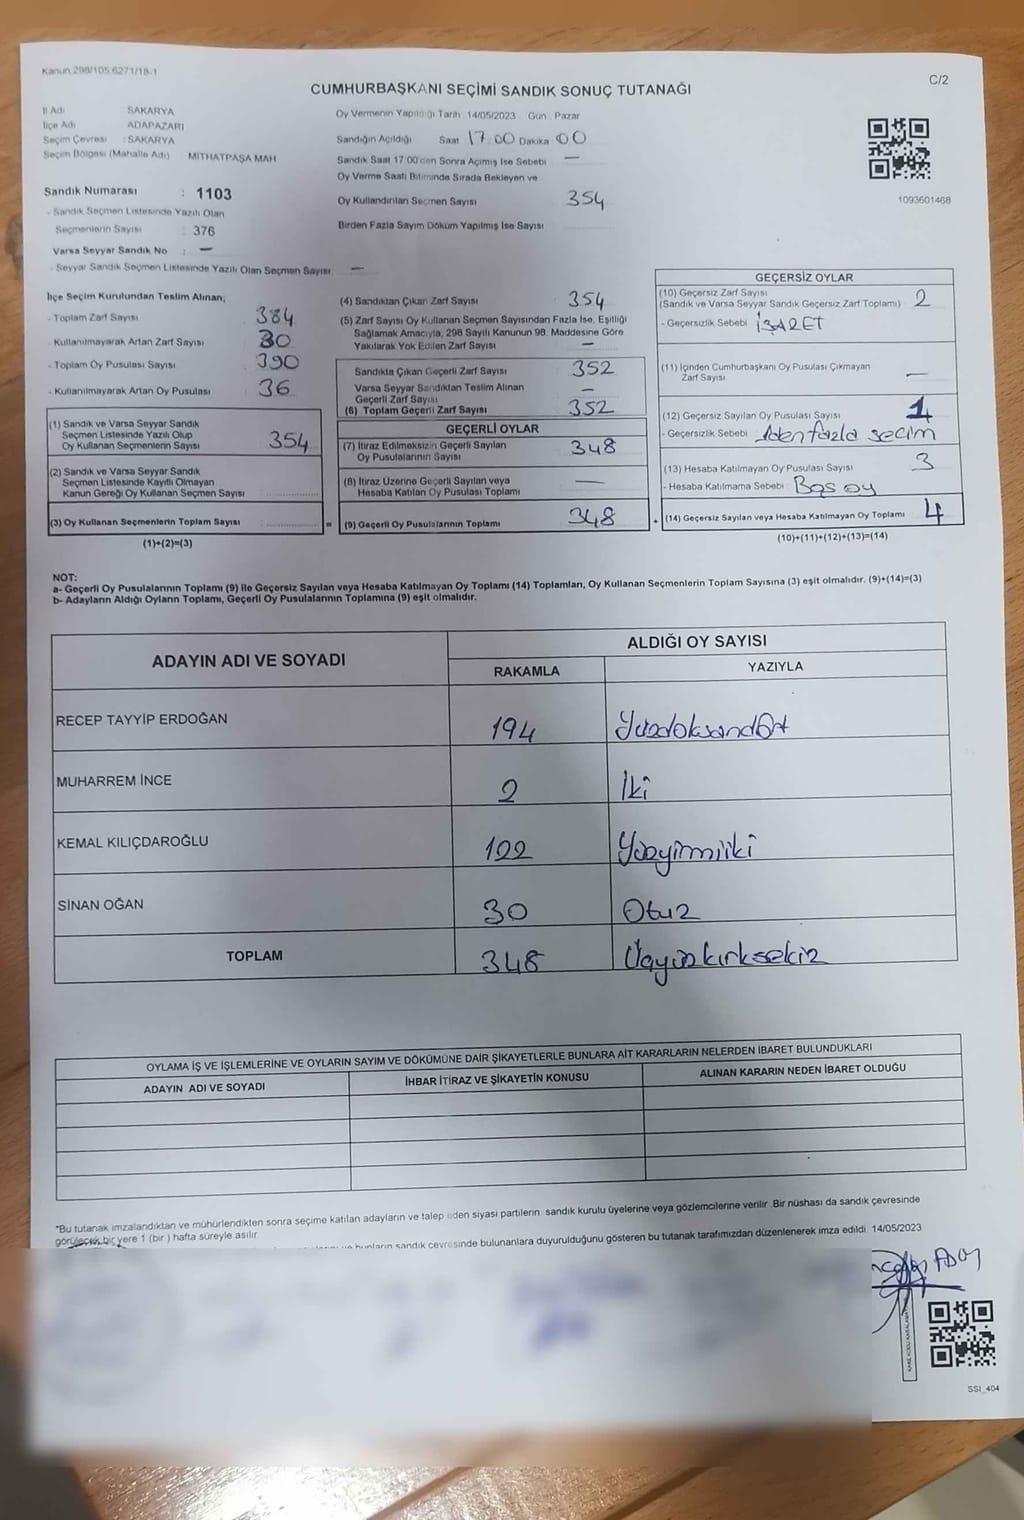 Kanun.298/105.6271/18-1
CUMHURBAŞKANI SEÇİMİ SANDIK SONUÇ TUTANAĞI
C/2
İl Adı SAKARYA
İlçe Adı ADAPAZARI
Seçim Çevresi : SAKARYA
Seçim Bölgesi (Mahalle Adı) MİTHATPAŞA MAH
Sandık Numarası : 1103
- Sandık Seçmen Listesinde Yazılı Olan
Seçmenlerin Sayısı : 376
Varsa Seyyar Sandık No : —
- Seyyar Sandık Seçmen Listesinde Yazılı Olan Seçmen Sayısı —
Oy Vermenin Yapıldığı Tarih 14/05/2023 Gün Pazar
Sandığın Açıldığı Saat 17.00 Dakika 00
Sandık Saat 17:00'den Sonra Açımış İse Sebebi —
Oy Verme Saati Bitiminde Sırada Bekleyen ve
Oy Kullandırılan Seçmen Sayısı 354
Birden Fazla Sayım Döküm Yapılmış İse Sayısı
1093601468
İlçe Seçim Kurulundan Teslim Alınan;
- Toplam Zarf Sayısı 384
- Kullanılmayarak Artan Zarf Sayısı 30
- Toplam Oy Pusulası Sayısı 390
- Kullanılmayarak Artan Oy Pusulası 36
(1) Sandık ve Varsa Seyyar Sandık
Seçmen Listesinde Yazılı Olup
Oy Kullanan Seçmenlerin Sayısı 354
(2) Sandık ve Varsa Seyyar Sandık
Seçmen Listesinde Kayıtlı Olmayan
Kanun Gereği Oy Kullanan Seçmen Sayısı
(3) Oy Kullanan Seçmenlerin Toplam Sayısı =
(1)+(2)=(3)
(4) Sandıktan Çıkan Zarf Sayısı 354
(5) Zarf Sayısı Oy Kullanan Seçmen Sayısından Fazla İse, Eşitliği
Sağlamak Amacıyla, 298 Sayılı Kanunun 98. Maddesine Göre
Yakılarak Yok Edilen Zarf Sayısı —
Sandıkta Çıkan Geçerli Zarf Sayısı 352
Varsa Seyyar Sandıktan Teslim Alınan
Geçerli Zarf Sayısı —
(6) Toplam Geçerli Zarf Sayısı 352
GEÇERLİ OYLAR
(7) İtiraz Edilmeksizin Geçerli Sayılan
Oy Pusulalarının Sayısı 348
(8) İtiraz Üzerine Geçerli Sayılan veya
Hesaba Katılan Oy Pusulası Toplamı —
(9) Geçerli Oy Pusulalarının Toplamı 348 +
GEÇERSİZ OYLAR
(10) Geçersiz Zarf Sayısı
(Sandık ve Varsa Seyyar Sandık Geçersiz Zarf Toplamı) 2
- Geçersizlik Sebebi İŞARET
(11) İçinden Cumhurbaşkanı Oy Pusulası Çıkmayan
Zarf Sayısı —
(12) Geçersiz Sayılan Oy Pusulası Sayısı 1
- Geçersizlik Sebebi 1den fazla secim
(13) Hesaba Katılmayan Oy Pusulası Sayısı 3
- Hesaba Katılmama Sebebi Boş oy
(14) Geçersiz Sayılan veya Hesaba Katılmayan Oy Toplamı 4
(10)+(11)+(12)+(13)=(14)
NOT:
a- Geçerli Oy Pusulalarının Toplamı (9) ile Geçersiz Sayılan veya Hesaba Katılmayan Oy Toplamı (14) Toplamları, Oy Kullanan Seçmenlerin Toplam Sayısına (3) eşit olmalıdır. (9)+(14)=(3)
b- Adayların Aldığı Oyların Toplamı, Geçerli Oy Pusulalarının Toplamına (9) eşit olmalıdır.
ADAYIN ADI VE SOYADI ALDIĞI OY SAYISI
RAKAMLA YAZIYLA
RECEP TAYYİP ERDOĞAN 194 Yüzdoksandört
MUHARREM İNCE 2 İki
KEMAL KILIÇDAROĞLU 122 Yüzyirmiiki
SİNAN OĞAN 30 Otuz
TOPLAM 348 Üçyüzkırksekiz
OYLAMA İŞ VE İŞLEMLERİNE VE OYLARIN SAYIM VE DÖKÜMÜNE DAİR ŞİKAYETLERLE BUNLARA AİT KARARLARIN NELERDEN İBARET BULUNDUKLARI
ADAYIN ADI VE SOYADI İHBAR İTİRAZ VE ŞİKAYETİN KONUSU ALINAN KARARIN NEDEN İBARET OLDUĞU
*Bu tutanak imzalandıktan ve mühürlendikten sonra seçime katılan adayların ve talep eden siyasi partilerin sandık kurulu üyelerine veya gözlemcilerine verilir .Bir nüshası da sandık çevresinde
görülecek bir yere 1 (bir ) hafta süreyle asılır.
bunların sandık çevresinde bulunanlara duyurulduğunu gösteren bu tutanak tarafımızdan düzenlenerek imza edildi 14/05/2023
SSI_404